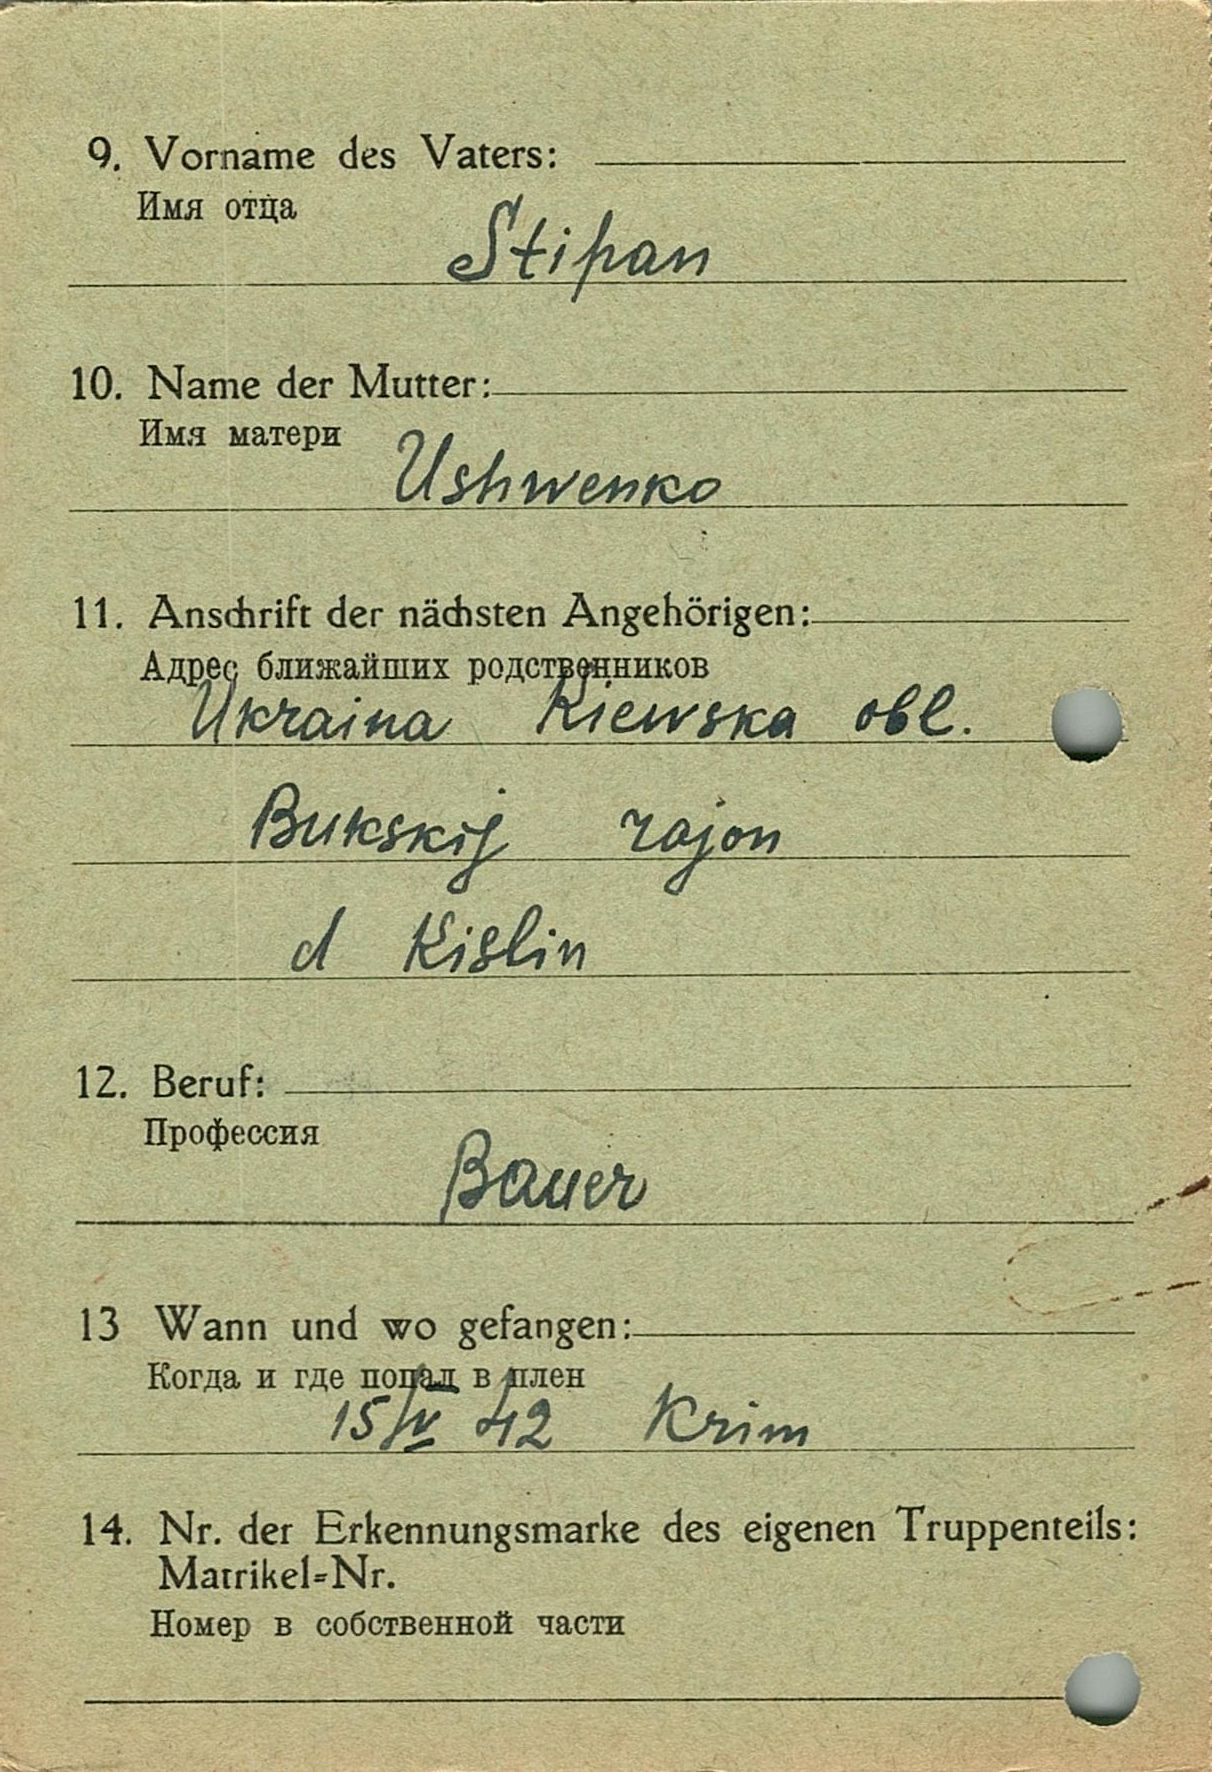 9. Vorname des Vaters:
Имя отца
Stipan
10. Name der Mutter:
Имя матери
Ushwenko
11. Anschrift der nächsten Angehörigen:
Адрес ближайших родственников
Ukraina Kiewska obl.
Bukskij rajon
d Kislin
12. Beruf:
Профессия
Bauer
13 Wann und wo gefangen:
Когда и где попал в плен
15/V 42 Krim
14. Nr. der Erkennungsmarke des eigenen Truppenteils:
Matrikel=Nr.
Номер в собственной части